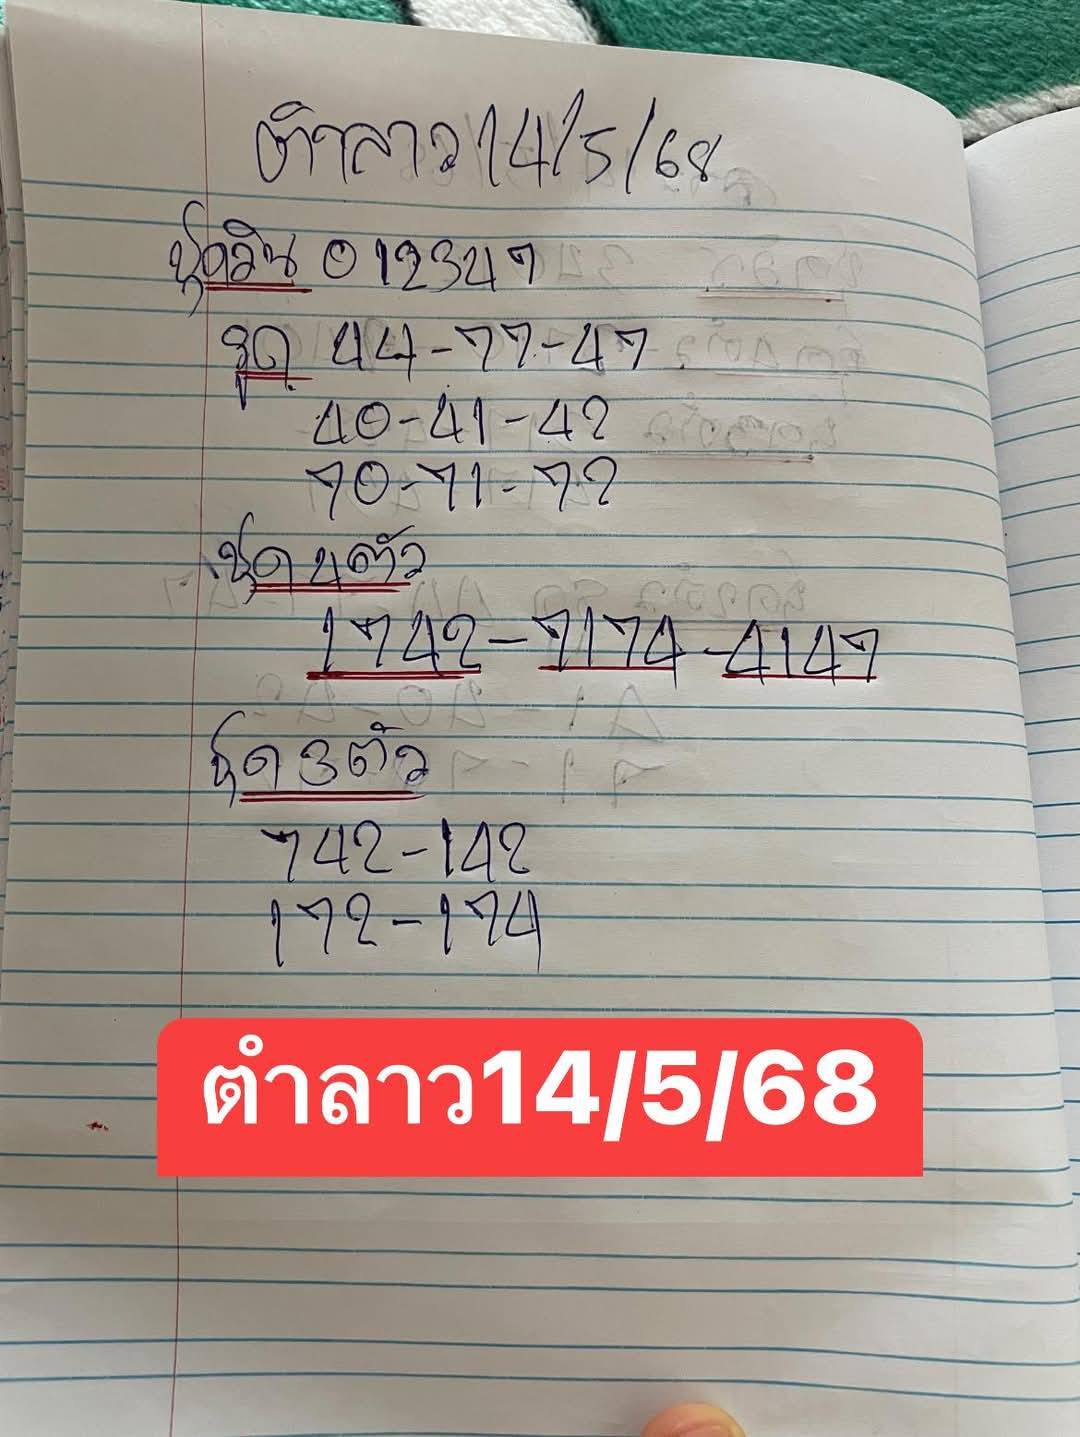 ตำลาว 14/5/68
ชุดวิน 012347
รูด 44-77-47
40-41-42
70-71-72
ชุด 4ตัว
1742-7174-4147
ชุด 3ตัว
742-142
172-174
ตำลาว14/5/68